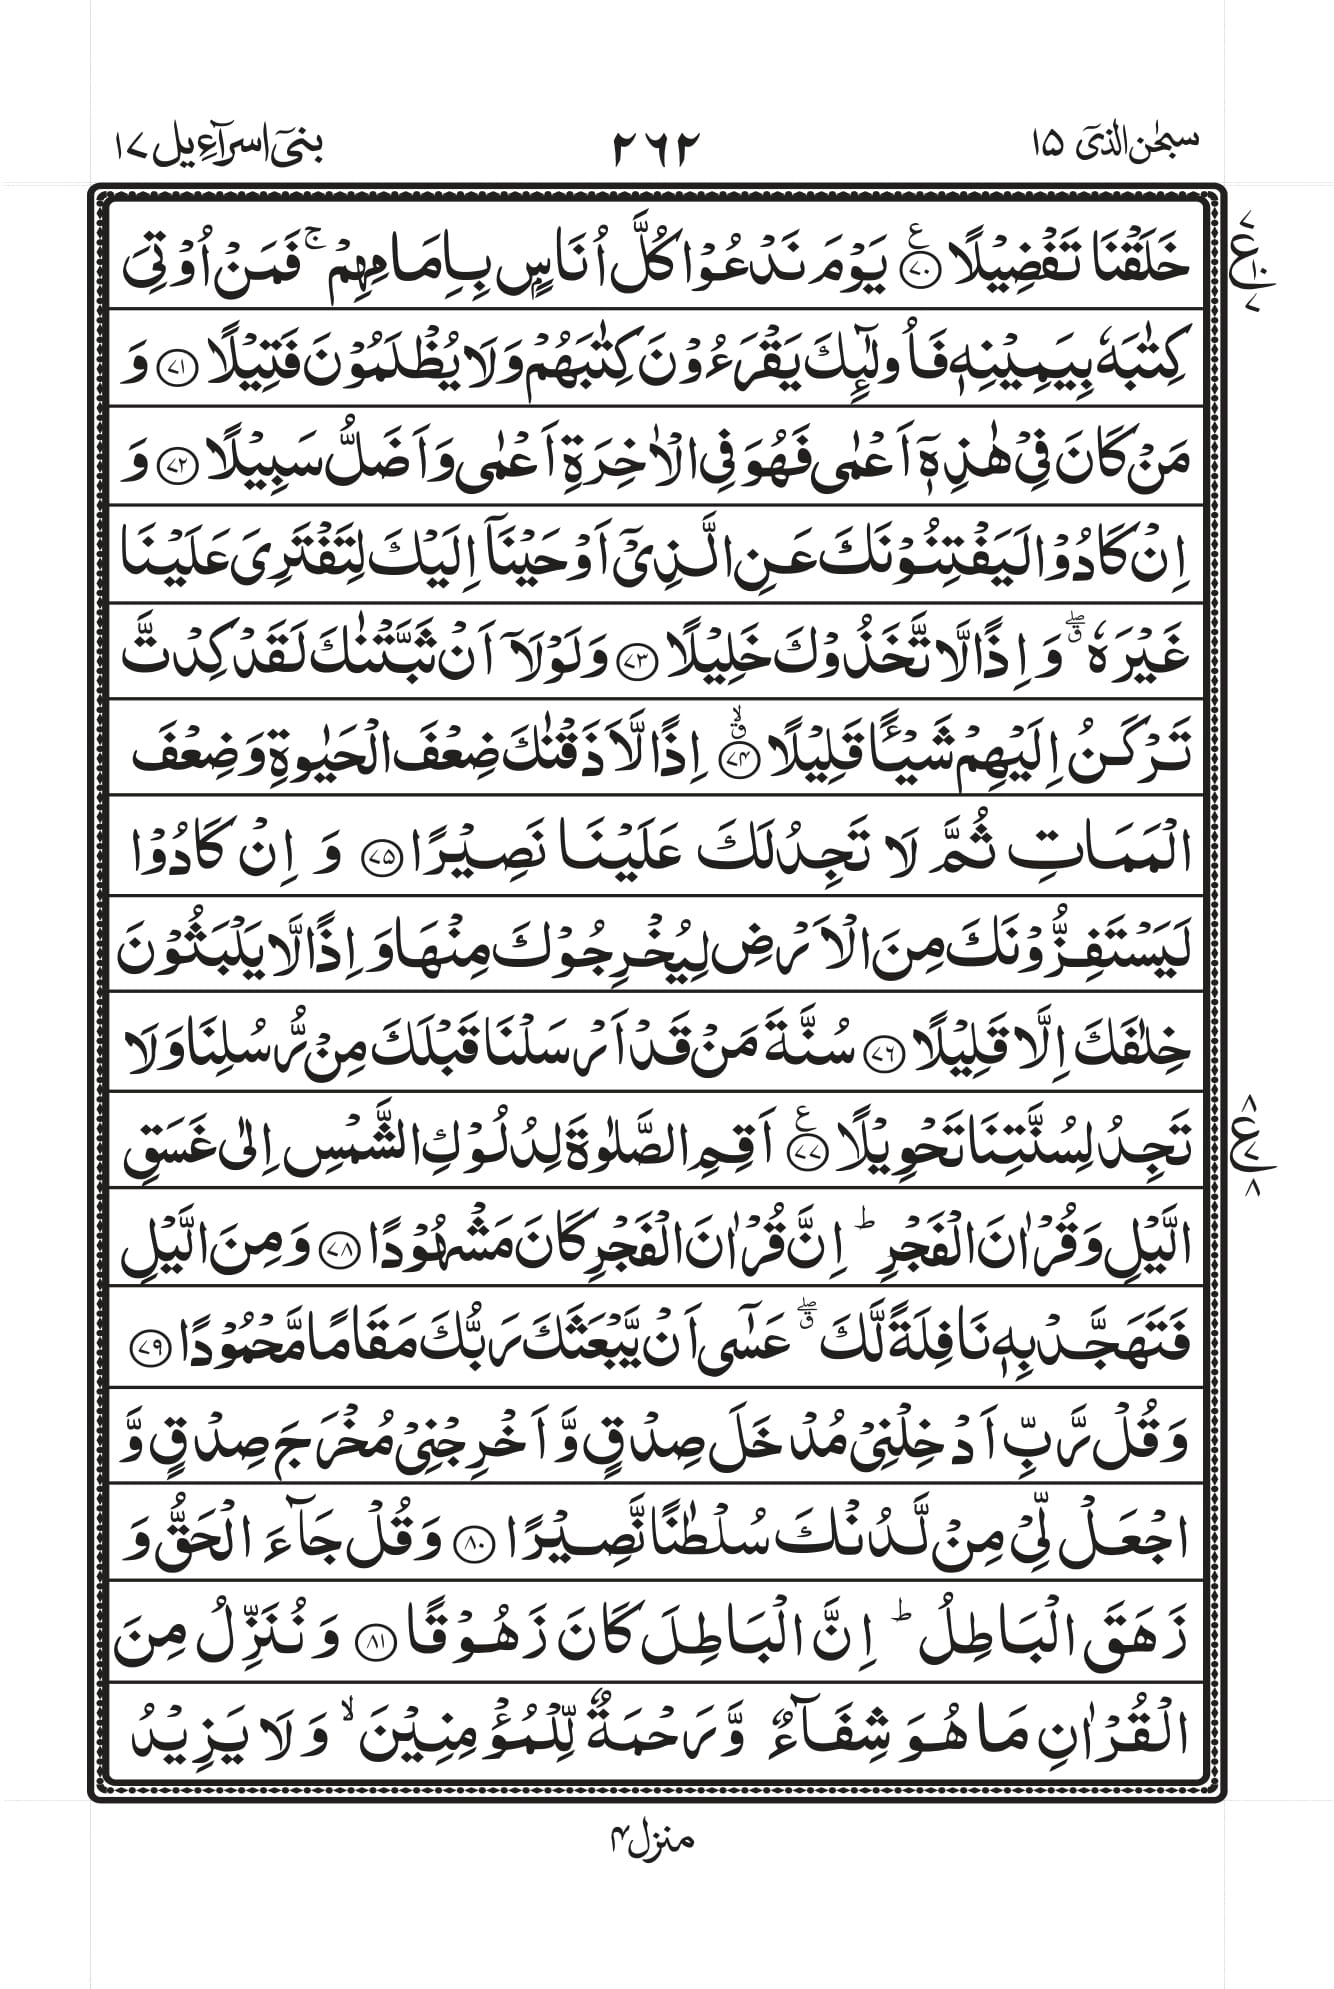 سبحٰن الذیٓ ۱۵
۲۶۲
بنیٓ اسرآءیل ۱۷
خَلَقْنَا تَفْضِيْلًا ﴿۷۰﴾ ع يَوْمَ نَدْعُوْا كُلَّ اُنَاسٍۭ بِاِمَامِهِمْ ۚ فَمَنْ اُوْتِىَ
۷
ع
۱۰
۷
كِتٰبَهٗ بِيَمِيْنِهٖ فَاُولٰٓئِكَ يَقْرَءُوْنَ كِتٰبَهُمْ وَلَا يُظْلَمُوْنَ فَتِيْلًا ﴿۷۱﴾ وَ
مَنْ كَانَ فِىْ هٰذِهٖۤ اَعْمٰى فَهُوَ فِى الْاٰخِرَةِ اَعْمٰى وَاَضَلُّ سَبِيْلًا ﴿۷۲﴾ وَ
اِنْ كَادُوْا لَيَفْتِنُوْنَكَ عَنِ الَّذِىْۤ اَوْحَيْنَاۤ اِلَيْكَ لِتَفْتَرِىَ عَلَيْنَا
غَيْرَهٗ ۖق وَاِذًا لَّا تَّخَذُوْكَ خَلِيْلًا ﴿۷۳﴾ وَلَوْلَاۤ اَنْ ثَبَّتْنٰكَ لَقَدْ كِدْتَّ
تَرْكَنُ اِلَيْهِمْ شَيْـًٔا قَلِيْلًا ﴿۷۴﴾ ۙق اِذًا لَّاَذَقْنٰكَ ضِعْفَ الْحَيٰوةِ وَضِعْفَ
الْمَمَاتِ ثُمَّ لَا تَجِدُ لَكَ عَلَيْنَا نَصِيْرًا ﴿۷۵﴾ وَ اِنْ كَادُوْا
لَيَسْتَفِزُّوْنَكَ مِنَ الْاَرْضِ لِيُخْرِجُوْكَ مِنْهَا وَ اِذًا لَّا يَلْبَثُوْنَ
خِلٰفَكَ اِلَّا قَلِيْلًا ﴿۷۶﴾ سُنَّةَ مَنْ قَدْ اَرْسَلْنَا قَبْلَكَ مِنْ رُّسُلِنَا وَلَا
تَجِدُ لِسُنَّتِنَا تَحْوِيْلًا ﴿۷۷﴾ ع اَقِمِ الصَّلٰوةَ لِدُلُوْكِ الشَّمْسِ اِلٰى غَسَقِ
۸
ع
۷
۸
الَّيْلِ وَقُرْاٰنَ الْفَجْرِ ؕ اِنَّ قُرْاٰنَ الْفَجْرِ كَانَ مَشْهُوْدًا ﴿۷۸﴾ وَمِنَ الَّيْلِ
فَتَهَجَّدْ بِهٖ نَافِلَةً لَّكَ ۖق عَسٰٓى اَنْ يَّبْعَثَكَ رَبُّكَ مَقَامًا مَّحْمُوْدًا ﴿۷۹﴾
وَقُلْ رَّبِّ اَدْخِلْنِىْ مُدْخَلَ صِدْقٍ وَّ اَخْرِجْنِىْ مُخْرَجَ صِدْقٍ وَّ
اجْعَلْ لِّىْ مِنْ لَّدُنْكَ سُلْطٰنًا نَّصِيْرًا ﴿۸۰﴾ وَقُلْ جَآءَ الْحَقُّ وَ
زَهَقَ الْبَاطِلُ ؕ اِنَّ الْبَاطِلَ كَانَ زَهُوْقًا ﴿۸۱﴾ وَنُنَزِّلُ مِنَ
الْقُرْاٰنِ مَا هُوَ شِفَآءٌ وَّرَحْمَةٌ لِّلْمُؤْمِنِيْنَ ۙ وَلَا يَزِيْدُ
منزل۴